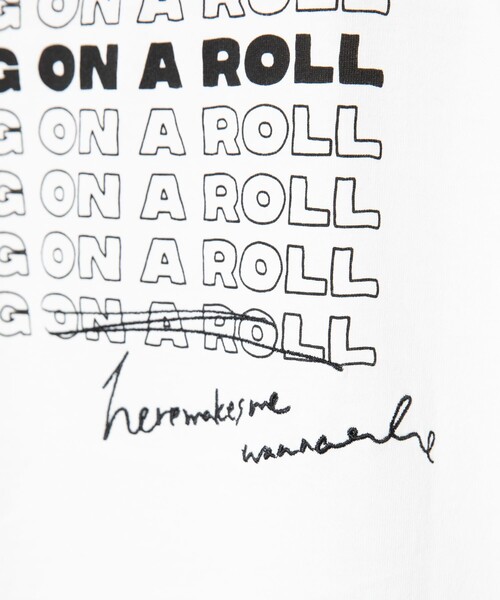 G ON A ROLL
G ON A ROLL
G ON A ROLL
G ON A ROLL
G ON A ROLL
G ON A ROLL
heremakesme